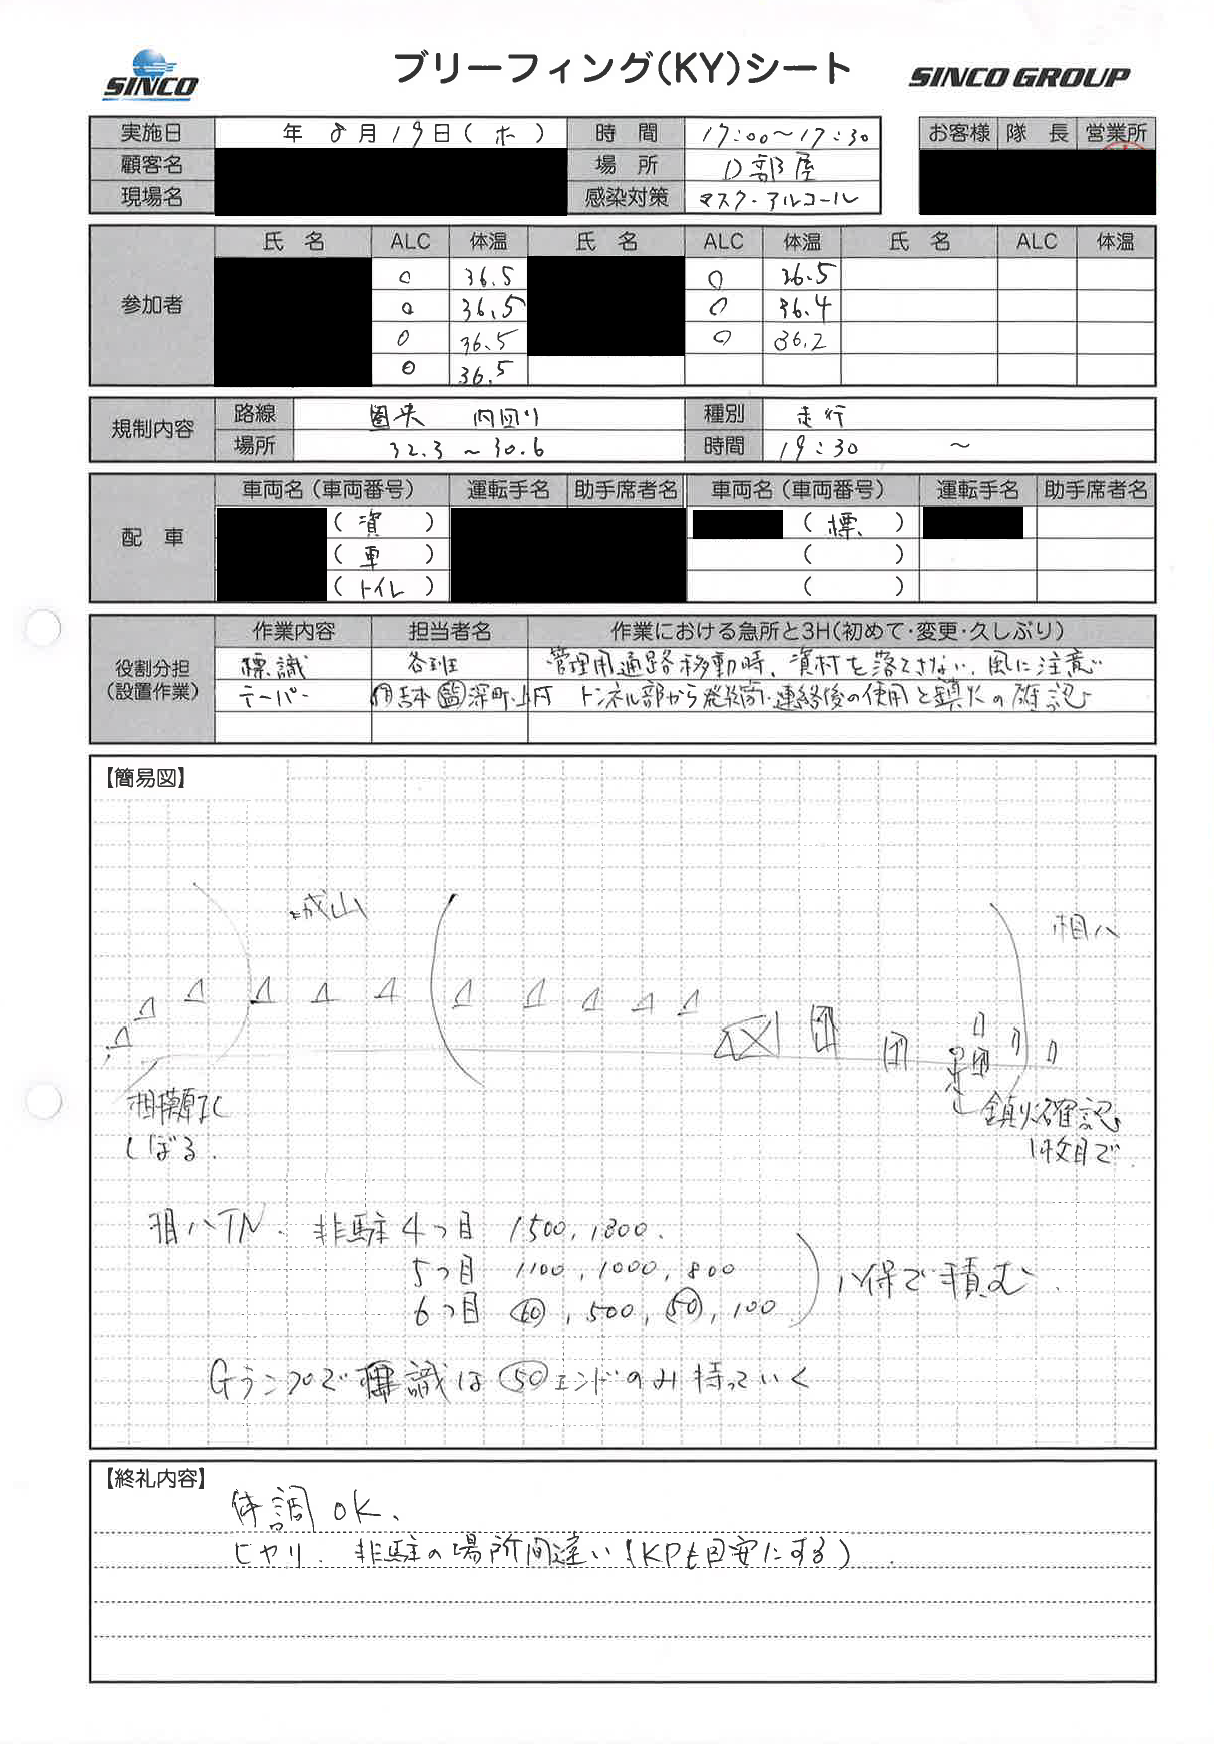 SINCO
ブリーフィング(KY)シート
SINCO GROUP
実施日 年 8月19日(木) 時間 17:00～17:30
お客様 隊長 営業所
顧客名 場所 D部屋
現場名 感染対策 マスク・アルコール
参加者
氏名 ALC 体温 氏名 ALC 体温 氏名 ALC 体温
○ 36.5 ○ 36.5
○ 36.5 ○ 36.4
○ 36.5 ○ 36.2
○ 36.5
規制内容
路線 圏央 内回り 種別 走行
場所 32.3 ～ 30.6 時間 19:30 ～
配車
車両名(車両番号) 運転手名 助手席者名 車両名(車両番号) 運転手名 助手席者名
(資) (標)
(車) ( )
(トイレ) ( )
役割分担(設置作業)
作業内容 担当者名 作業における急所と3H(初めて・変更・久しぶり)
標識 各班 管理用通路移動時、資材を落とさない、風に注意
テーパー 吉本 深町、上 トンネル部から発炎筒・連絡後の使用と鎮火の確認
【簡易図】
城山
相八
相模原IC
しぼる.
鎮火確認
1枚目で.
相八TN. 非駐4つ目 1500, 1300.
5つ目 1100, 1000, 800
6つ目 60, 500, 50, 100
八保で積む.
Gランプで標識は50エンドのみ持っていく
【終礼内容】
体調OK、
ヒヤリ. 非駐の場所間違い(KPも目安にする).